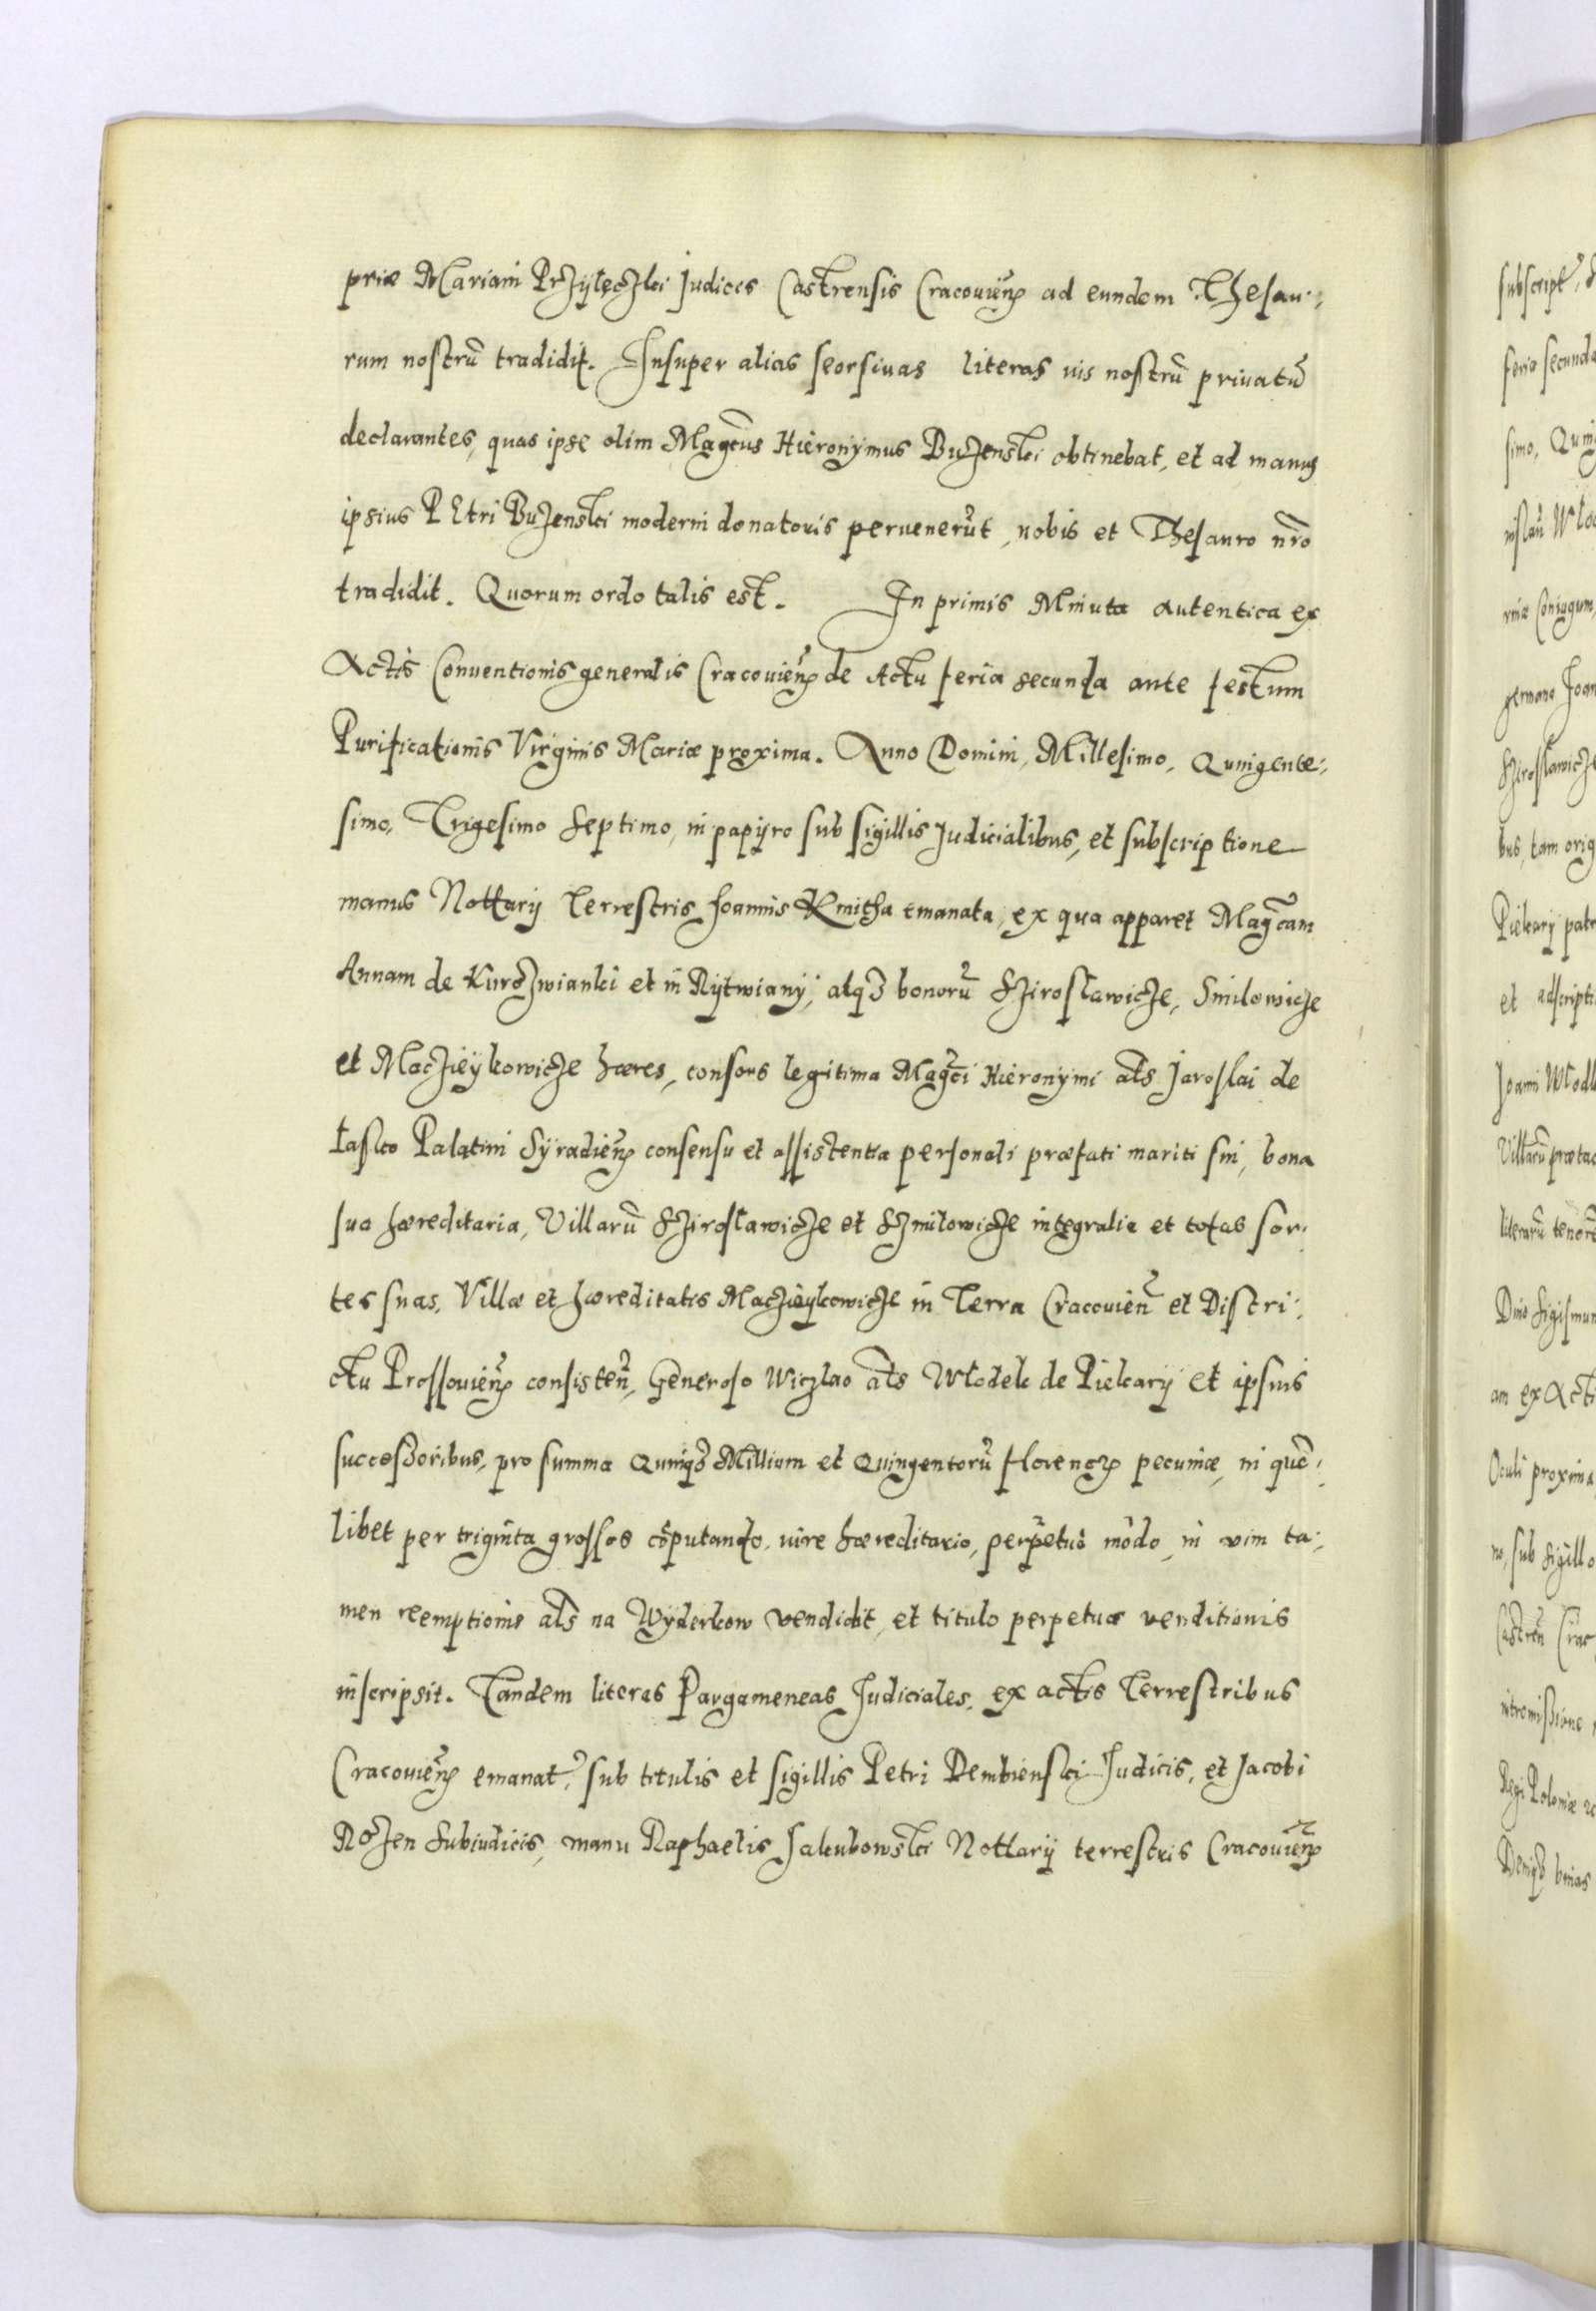 priæ Mariani Przÿlęczki Judices Castrensis Cracouien̄ ad eundem Thesau:,
rum nostrū tradidit. Insuper alias seorsiuas literas uis nostrū priuatū
declarantes, quas ipse olim Magcus Hieronÿmus Buzenski obtinebat, et ad manus
ipsius PEtri Buzenski moderni donatoris peruenerūt, nobis et Thesauro nr̄o
tradidit. Quorum ordo talis est. In primis Minuta autentica ex
Actis Conuentionis generalis Cracouien̄ de Actu feria secunda ante festum
Purificationis Virginis Mariæ proxima. Anno Domini, Millesimo, Quingente:,
simo, Trigesimo Septimo, in papÿro sub sigillis Judicialibus, et subscriptione
manus Nottarÿ Terrestris Joannis Kmitha emanata, ex qua apparet Magcam
Annam de Kurozwianki et in Rÿtwianÿ, atqȝ bonorū Sziroslawicze, Smilowicze
et Maczieÿkowicze hæres, consors legitima Magci Hieronymi als Jaroslai de
Łasko Palatini Sÿradien̄ consensu et assistentia personali præfati mariti sui, bona
sua hæreditaria, Villarū Sziroslawicze et Szmilowicze integralia et totas sor:
tes suas, Villæ et hæreditatis Maczieÿkowicze in Terra Cracouien̄ et Distri:,
ctu Prossouien̄ consisten̄, Generoso Wiczlao als Wlodek de Piekarÿ et ipsius
successoribus, pro summa Quinqȝ Millium et Quingentorū florenoꝝ pecuniæ, in quē:,
libet per triginta grossos cōputando, iure hæreditario, perpetuo modo, in vim ta:,
men reemptionis als na Wÿderkow vendidit, et titulo perpetuæ venditionis
inscripsit. Tandem literas Pargameneas Judiciales, ex actis Terrestribus
Cracouien̄ emanat̄, sub titulis et sigillis Petri Dembienski Judicis, et Jacobi
Rozen Subiudicis, manu Raphaelis Jakubowski Nottarÿ terrestris Cracouien̄